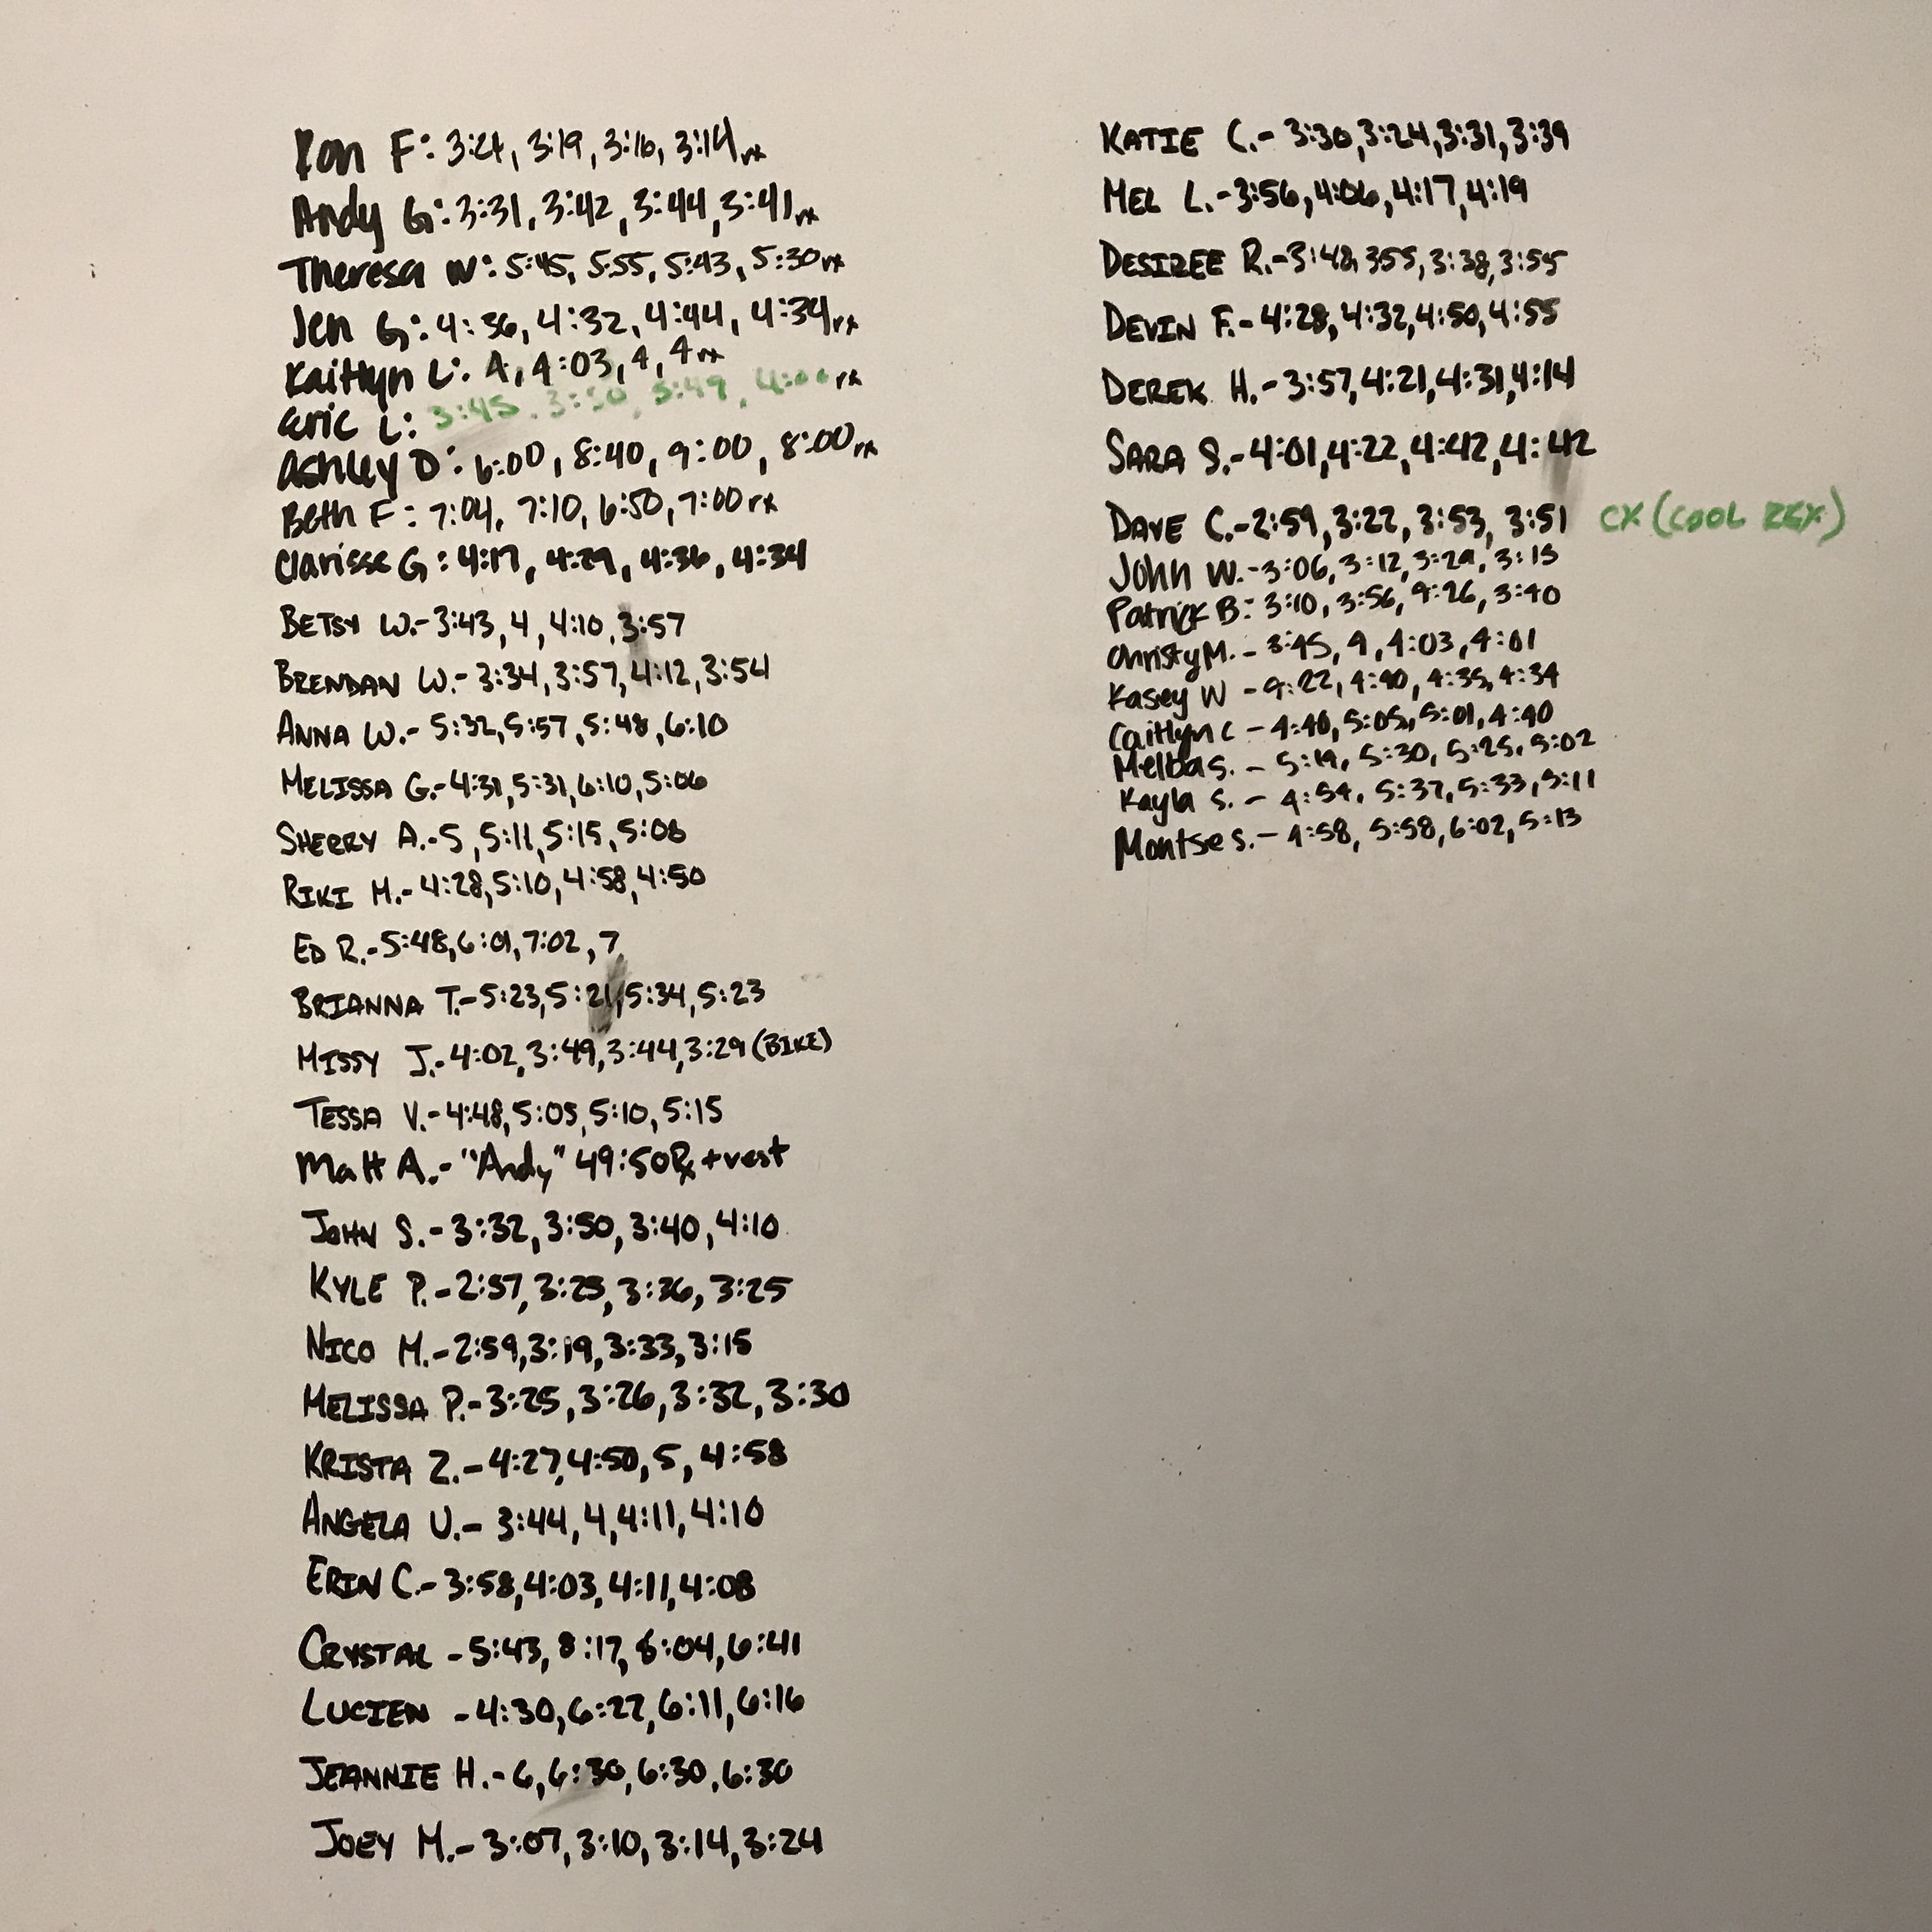 Ron F: 3:24, 3:19, 3:16, 3:14 rx
Andy G: 3:31, 3:42, 3:44, 3:41 rx
Theresa W: 5:45, 5:55, 5:43, 5:30 rx
Jen G: 4:36, 4:32, 4:44, 4:34 rx
Kaitlyn L: 4, 4:03, 4, 4 rx
Eric L: 3:45, 3:50, 3:49, 4:00 rx
Ashley D: 6:00, 8:40, 9:00, 8:00 rx
Beth F: 7:04, 7:10, 6:50, 7:00 rx
Clarisse G: 4:17, 4:29, 4:36, 4:34
BETSY W.-3:43, 4, 4:10, 3:57
BRENDAN W.-3:34, 3:57, 4:12, 3:54
ANNA W.-5:32, 5:57, 5:48, 6:10
MELISSA G.-4:31, 5:31, 6:10, 5:06
SHERRY A.-5, 5:11, 5:15, 5:08
RIKI M.-4:28, 5:10, 4:58, 4:50
ED R.-5:48, 6:01, 7:02, 7
BRIANNA T.-5:23, 5:21, 5:34, 5:23
MISSY J.-4:02, 3:49, 3:44, 3:29 (BIKE)
TESSA V.-4:48, 5:05, 5:10, 5:15
Matt A.-"Andy" 49:50 Rx +vest
JOHN S.-3:32, 3:50, 3:40, 4:10
KYLE P.-2:57, 3:23, 3:26, 3:25
NICO M.-2:59, 3:19, 3:33, 3:15
MELISSA P.-3:25, 3:26, 3:32, 3:30
KRISTA Z.-4:27, 4:50, 5, 4:58
ANGELA U.-3:44, 4, 4:11, 4:10
ERIN C.-3:58, 4:03, 4:11, 4:08
CRYSTAL -5:43, 8:17, 8:04, 6:41
LUCIEN -4:30, 6:22, 6:11, 6:16
JEANNIE H.-6, 6:30, 6:30, 6:30
JOEY M.-3:07, 3:10, 3:14, 3:24
KATIE C.-3:30, 3:24, 3:31, 3:39
MEL L.-3:56, 4:06, 4:17, 4:19
DESIREE R.-3:48, 355, 3:38, 3:55
DEVIN F.-4:28, 4:32, 4:50, 4:55
DEREK H.-3:57, 4:21, 4:31, 4:14
SARA S.-4:01, 4:22, 4:42, 4:42
DAVE C.-2:59, 3:22, 3:53, 3:51 CX (COOL REX)
John W.-3:06, 3:12, 3:29, 3:15
Patrick B: 3:10, 3:56, 4:26, 3:40
Christy M. - 3:45, 4, 4:03, 4:01
Kasey W - 4:22, 4:40, 4:35, 4:34
Caitlyn C - 4:40, 5:05, 5:01, 4:40
Melba S. - 5:19, 5:30, 5:25, 5:02
Kayla S. - 4:54, 5:37, 5:33, 5:11
Montse S. - 4:58, 5:58, 6:02, 5:13